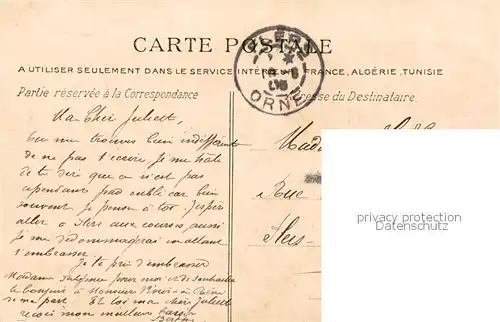 CARTE POSTALE
A UTILISER SEULEMENT DANS LE SERVICE INTÉRIEUR, FRANCE, ALGÉRIE, TUNISIE
Partie réservée à la Correspondance
Adresse du Destinataire.
FLERS
ORNE
Ma Cher Juliette,
tu me trouves bien indifférent
de ne pas t'écrire je me hâte
de te dire que ce n'est pas
cependant pas oubli car bien
souvent je pense à toi. J'espère
aller à Flers aux courses, aussi
je me dédommagerai en allant
t'embrasser.
Je te prie d'embrasser
Madame pour moi et de souhaiter
le bonjour à Monsieur
de ma part. Et toi ma chère Juliette
reçois mon meilleur baiser
Berthe
Mada
Rue
Flers-
privacy protection
Datenschutz